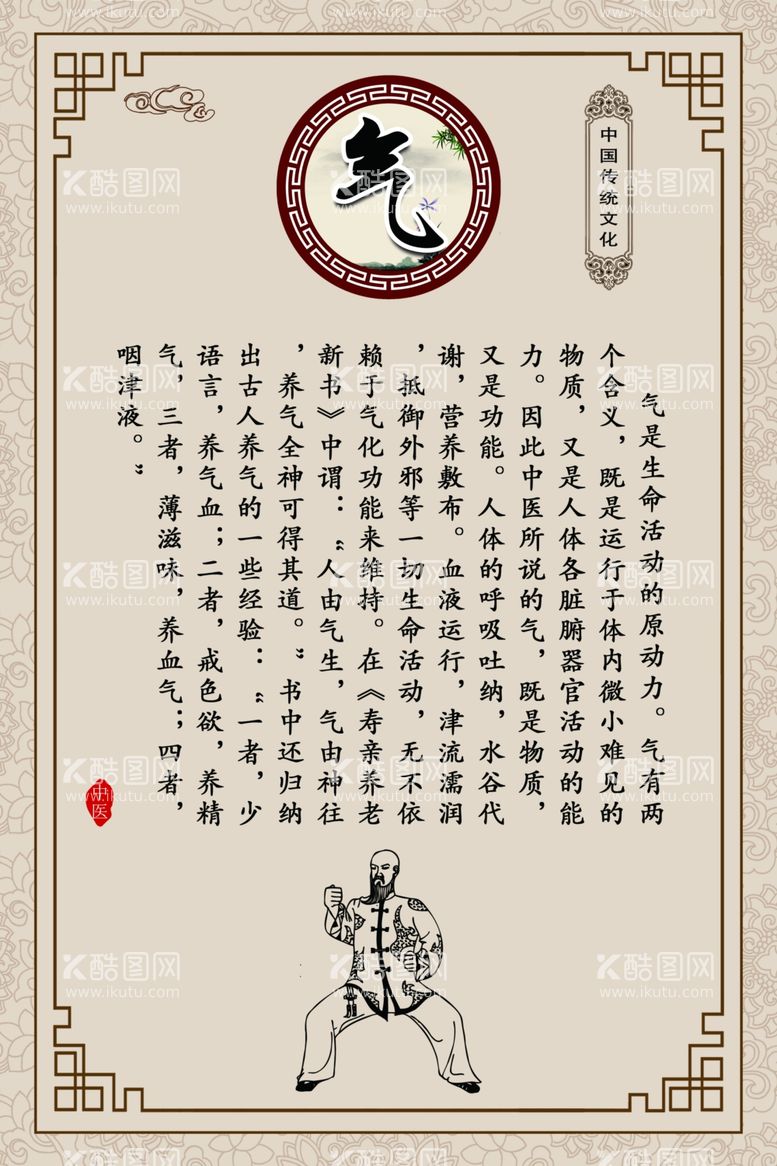 气
中国传统文化
气是生命活动的原动力。气有两
个含义，既是运行于体内微小难见的
物质，又是人体各脏腑器官活动的能
力。因此中医所说的气，既是物质，
又是功能。人体的呼吸吐纳，水谷代
谢，营养敷布。血液运行，津流濡润
，抵御外邪等一切生命活动，无不依
赖于气化功能来维持。在《寿亲养老
新书》中谓：“人由气生，气由神往
，养气全神可得其道。”书中还归纳
出古人养气的一些经验：“一者，少
语言，养气血；二者，戒色欲，养精
气，三者，薄滋味，养血气；四者，
咽津液。”
中医
酷图网
www.ikutu.com